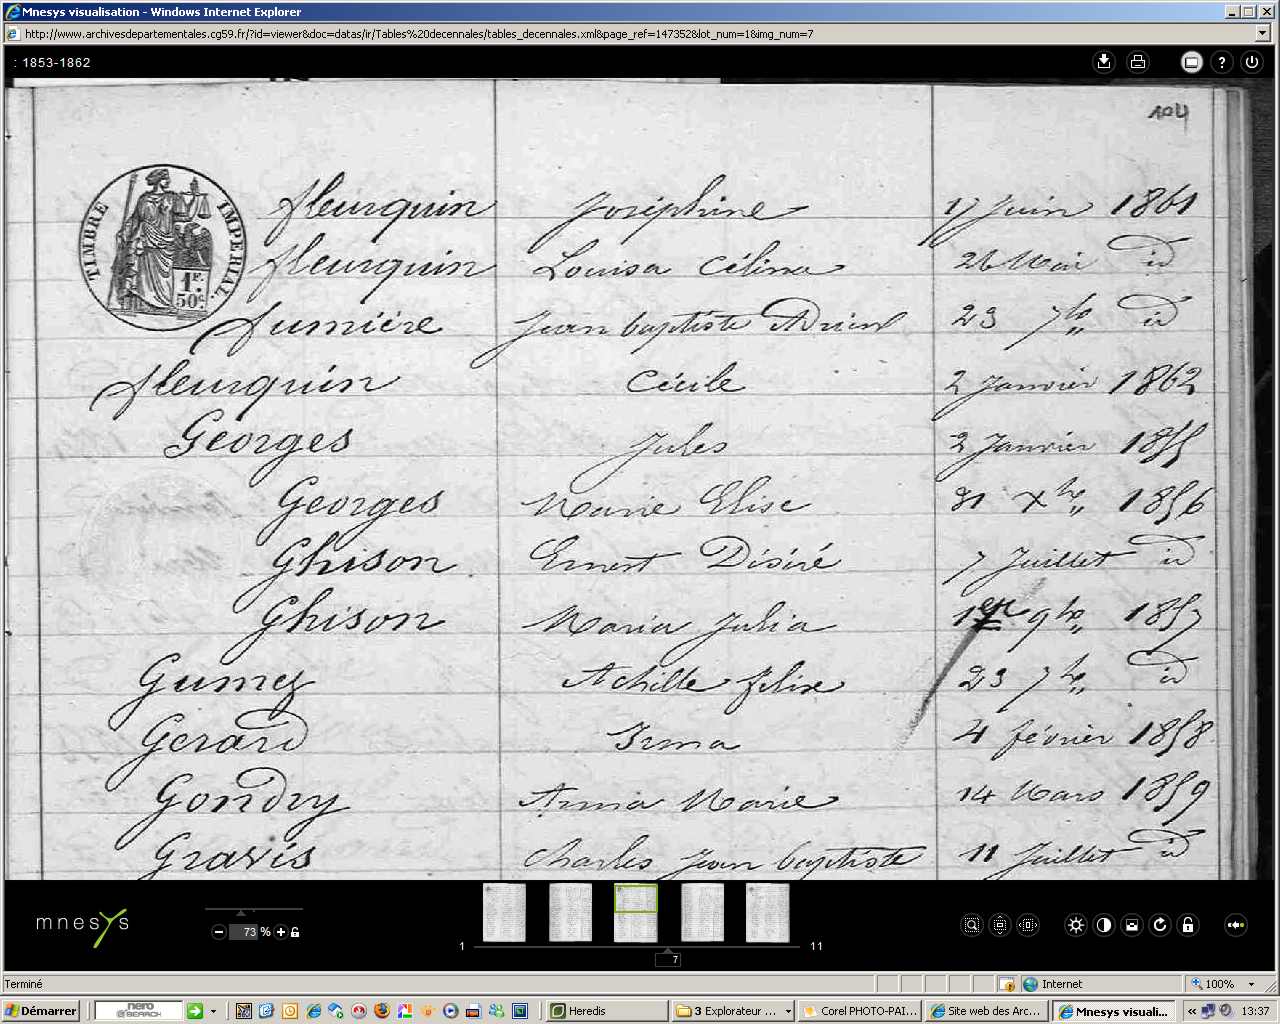 Mnesys visualisation - Windows Internet Explorer
http://www.archivesdepartementales.cg59.fr/?id=viewer&doc=datas/ir/Tables%20decennales/tables_decennales.xml&page_ref=147352&lot_num=1&img_num=7
: 1853-1862
104
TIMBRE IMPERIAL. 1F. 50c.
fleurquin Joséphine 17 Juin 1861
fleurquin Louisa Célina 26 Mai id
fumière Jean baptiste Adrien 23 7bre id
fleurquin Cécile 2 Janvier 1862
Georges Jules 2 Janvier 1855
Georges Marie Elise 31 Xbre 1856
Ghison Ernest Désiré 7 Juillet id
Ghison Maria Julia 1er 9bre 1857
Gumez Achille felix 23 7bre id
Gerard Irma 4 février 1858
Gondry Anna Marie 14 Mars 1859
Gravis Charles Jean baptiste 11 Juillet id
mnesys
73 %
1 11
7
Terminé Internet 100%
Démarrer nero SEARCH Heredis 3 Explorateur ... Corel PHOTO-PAI... Site web des Arc... Mnesys visuali... 13:37